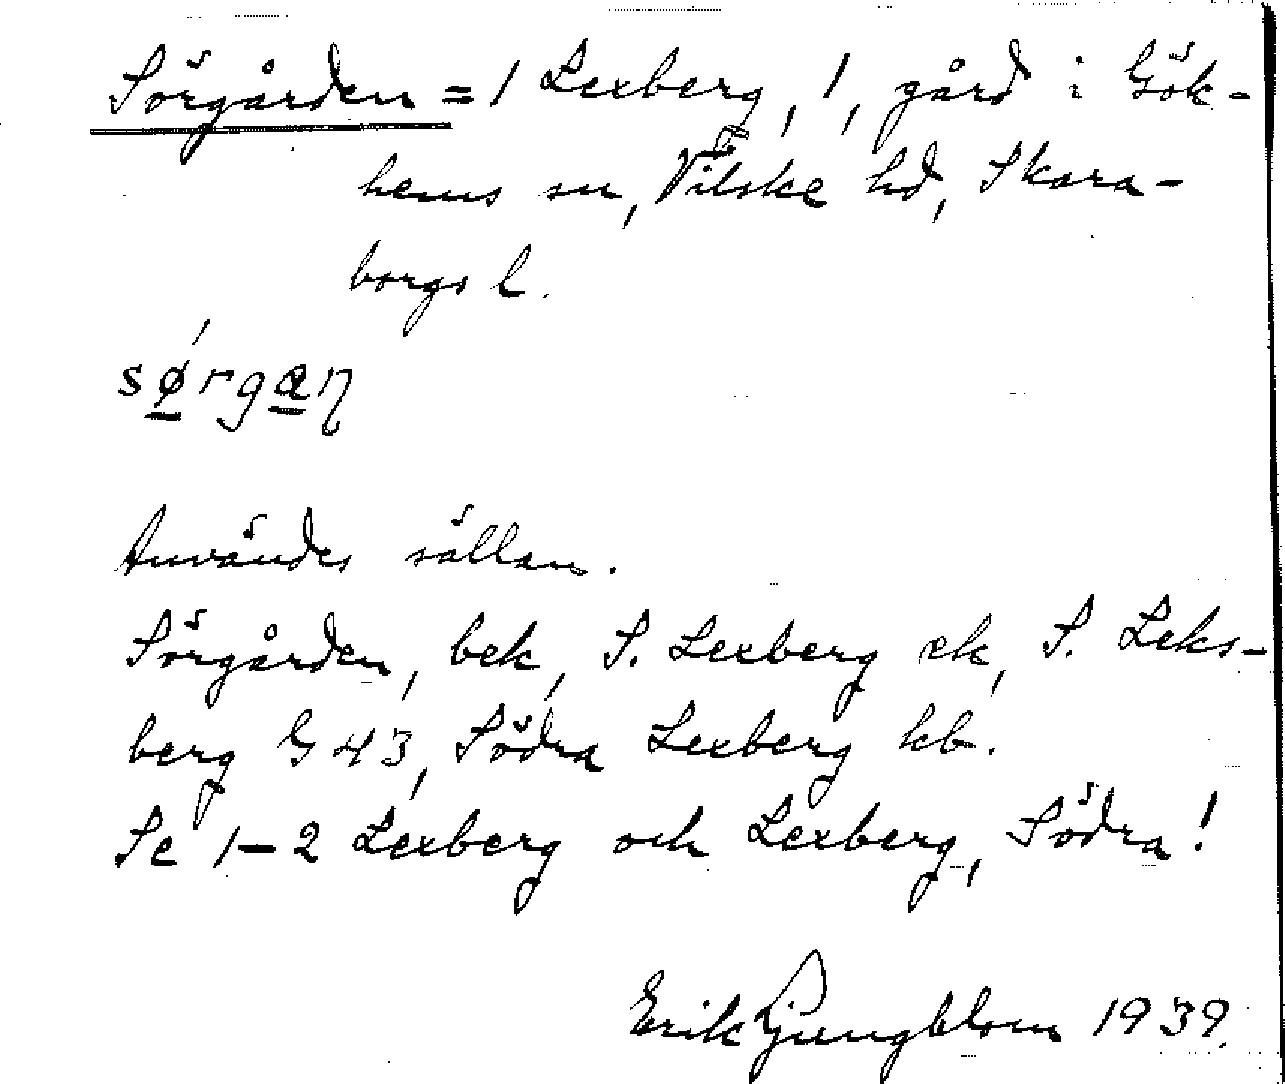 Sörgården = 1 Lexberg, 1, gård i Gök-
hems sn, Vilske hd, Skara-
borgs l.
sǿ̱rga̱ɳ
Användes sällan.
Sörgården, bek, S. Lexberg ek, S. Leks-
berg G 43, Södra Lexberg kb.
Se 1-2 Lexberg och Lexberg, Södra!
Erik Ljungblom 1939.